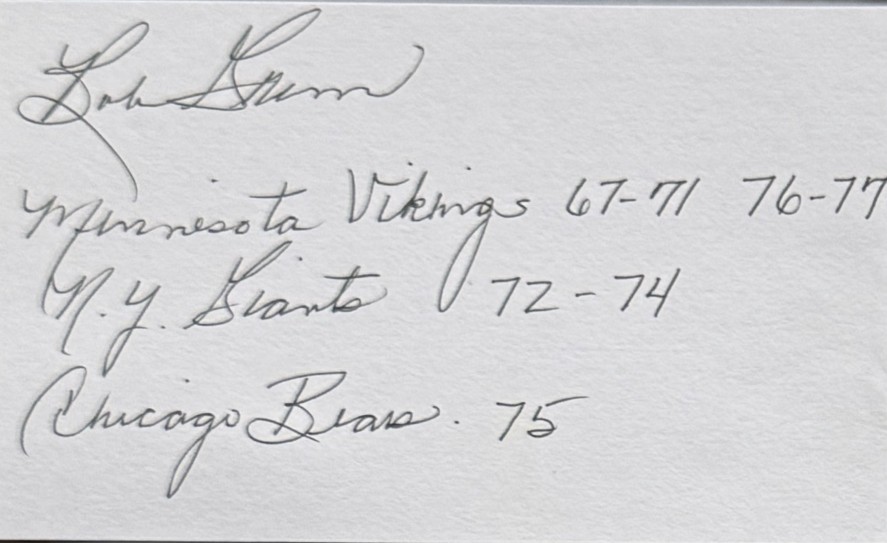 Bob Grim
Minnesota Vikings 67-71 76-77
N.Y. Giants 72-74
Chicago Bears. 75